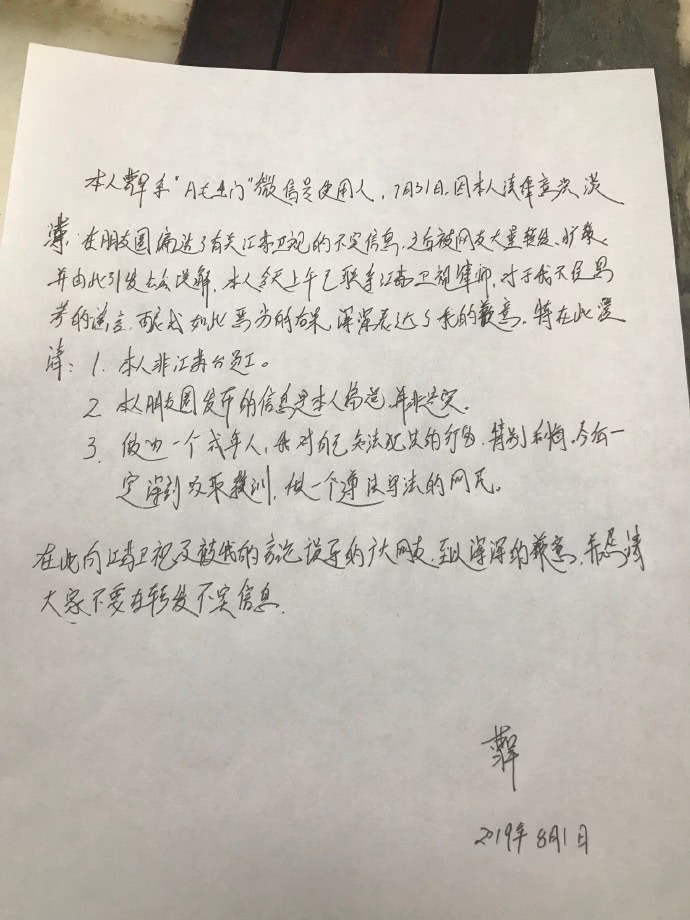 本人系"月七土门"微信号使用人,7月31日,因本人法律意识淡
薄,在朋友圈编造了有关江苏卫视的不实信息,之后被网友大量转发、扩散,
并由此引发公众误解,本人今天上午已联系江苏卫视律师,对于我不经思
考的谣言,酿成如此恶劣的后果,深深表达了我的歉意,特在此澄
清:1. 本人非江苏台员工。
2. 本人朋友圈发布的信息是本人编造,并非实。
3. 做为一个成年人,我对自己知法犯法的行为,特别后悔,今后一
定深刻吸取教训,做一个遵法守法的网民。
在此向江苏卫视及被我的言论误导的广大网友,致以深深的歉意,恳请
大家不要在转发不实信息.
2019年8月1日